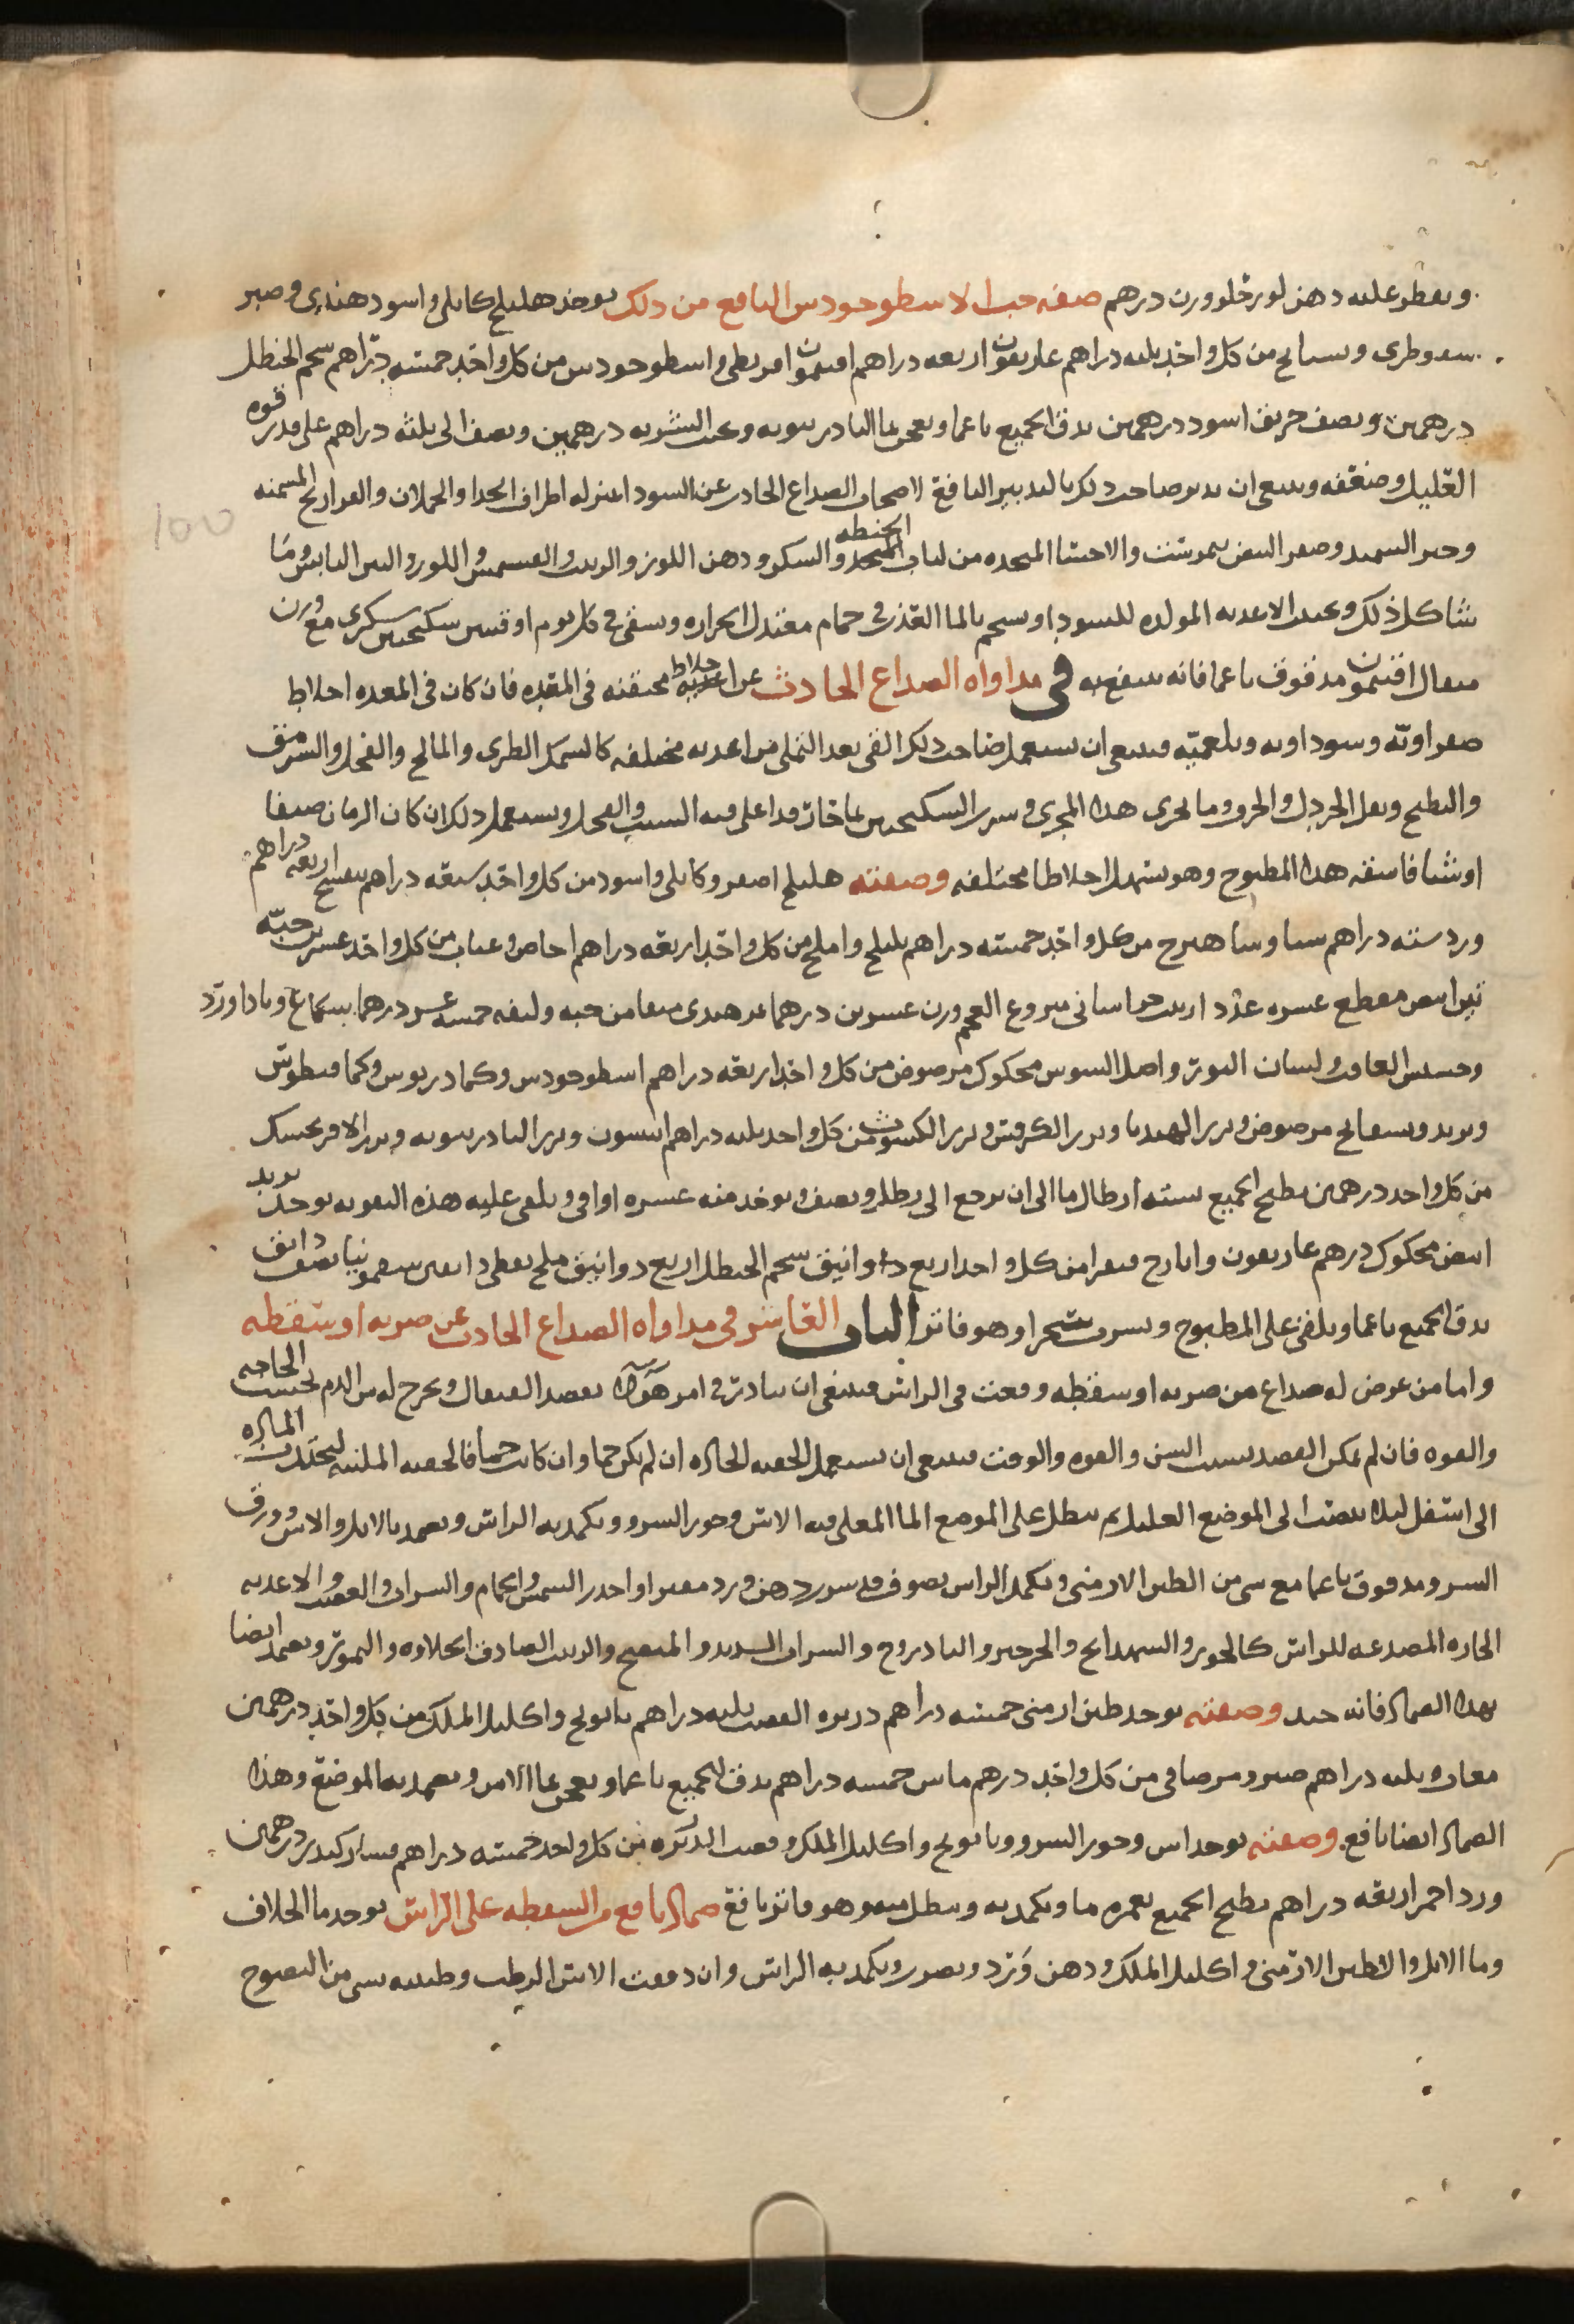 ويقطر عليه دهن لوز حلو وزن درهم صفه حب الاسطوخودس النافع من ذلك يوخذ هليلج كابلى واسود هندى وصبر
سقوطرى وبسبايج من كل واحد ثلثه دراهم غاريقون اربعه دراهم افتيمون اقريطى واسطوخودس من كل واحد خمسه دراهم شحم الحنظل
درهمين ونصف خربق اسود درهمين يدق الجميع ناعما ويعجن بما البادرنبويه ويحبب الشربه درهمين ونصف الى ثلثه دراهم على قدر قوه
العليل وضعفه وينبغى ان يدبر صاحب ذلك بالتدبير النافع لاصحاب الصداع الحادث عن السودا بمنزله اطراف الجدا والحملان والفراريج المسمنه
وخبز السميد وصفر البيض نيمرشت والاحشا المتخده من لباب الحنطه والسكر ودهن اللوز والزبيب والفستق واللوز والتين اليابس وما
شاكل ذلك ويجتنب الاغديه المولده للسودا ويستحم بالما العذب فى حمام معتدل الحراره ويسقى فى كل يوم اوقيتين سكنجبين سكرى مع وزن
مثقال افتيمون مدقوق ناعما فانه ينتفع به فى مداواه الصداع الحادث عن اخلاط محتقنه فى المعده فان كان فى المعده اخلاط
صفراويه وسوداويه وبلغميه فينبغى ان يستعمل صاحب ذلك القى بعد التملى من اغديه مختلفه كالسمك الطرى والمالح والفجل والسرمق
والبطيخ وبقل الخردل والجزر وما يجرى هذا المجرى وشرب السكنجبين بما حار قد اغلى فيه الشبت والفجل ويستعمل ذلك ان كان الزمان صيفا
او شتا فاسقه هذا المطبوخ وهو يسهل اخلاطا مختلفه وصفته هليلج اصفر وكابلى واسود من كل واحد سبعه دراهم بنفسج اربعه دراهم
ورد سته دراهم سنا وشاهترج من كل واحد خمسه دراهم بليلج واملج من كل واحد اربعه دراهم اجاص وعناب من كل واحد عشرين حبه
تين ابيض مقطع عشره عدد زبيب خراسانى منزوع العجم وزن عشرين درهما تمر هندى منقا من حبه وليفه خمسه عشر درهما بسكاعج وباداورد
وحشيش الغافت ولسان الثور واصل السوس محكوك مرضوض من كل واحد اربعه دراهم اسطوخودس وكمادريوس وكمافيطوس
وتربد وبسفايج مرضوض وبزر الهندبا وبزر الكرفس وبزر الكشوث من كل واحد ثلثه دراهم انيسون وبزر البادرنبويه وبزر الافرنجمشك
من كل واحد درهمين يطبخ الجميع بسته ارطال ما الى ان يرجع الى رطل ونصف ويوخذ منه عشره اواقى ويلقى عليه هذه التقويه يوخذ تربد
ابيض محكوك درهم غاريقون وايارج فيقرا من كل واحد اربع دوانيق شحم الحنظل اربع دوانيق ملح نفطى دانقين سقمونيا نصف دانق
يدق الجميع ناعما ويلقى على المطبوخ ويشرب سحرا وهو فاتر الباب العاشر فى مداواه الصداع الحادث عن ضربه او سقطه
واما من عرض له صداع من ضربه او سقطه وقعت فى الراس فينبغى ان يبادر فى امر هولا بفصد القيفال ويخرج له من الدم بحسب الحاجه
والقوه فان لم يمكن الفصد بسبب السن والقوه والوقت فينبغى ان يستعمل الحقنه الحاده ان لم يكن حما وان كانت حما فالحقنه الملينه لتجتدب الماده
الى اسفل ليلا تنصب الى الموضع العليل ثم ينطل على الموضع الما المغلى فيه الاس وجوز السرو ويكمد به الراس ويضمد بالاثل والاس وورق
السرو مدقوق ناعما مع شى من الطين الارمنى ويكمد الراس بصوف قد شرب دهن ورد مفترا واحدر الشمس والحمام والشراب والغضب والاغديه
الحاره المصدعه للراس كالجوز والشهدانج والجرجير والبادروج والشراب الشديد والمنصح والزبيب الصادق الحلاوه والتمور ويضمد ايضا
بهذا الضماد فانه جيد وصفته يوخذ طين ارمنى خمسه دراهم دريره القصب ثلثه دراهم بابونج واكليل الملك من كل واحد درهمين
مغاث ثلثه دراهم صبر ومر صافى من كل واحد درهم ماش خمسه دراهم يدق الجميع ناعما ويعجن بما الاس ويضمد به الموضع وهذا
الضماد ايضا نافع وصفته يوخذ اس وجوز السرو وبابونج واكليل الملك وقصب الذريره من كل واحد خمسه دراهم قشار كندر درهمين
ورد احمر اربعه دراهم يطبخ الجميع بغمره ما ويكمد به وينطل منه وهو فاتر نافع ضماد نافع من السقطه على الراس يوخذ ما الخلاف
وما الاثل والطين الارمنى واكليل الملك ودهن ورد ويضرب ويكمد به الراس وان دققت الاس الرطب وطبيته بشى من النضوح